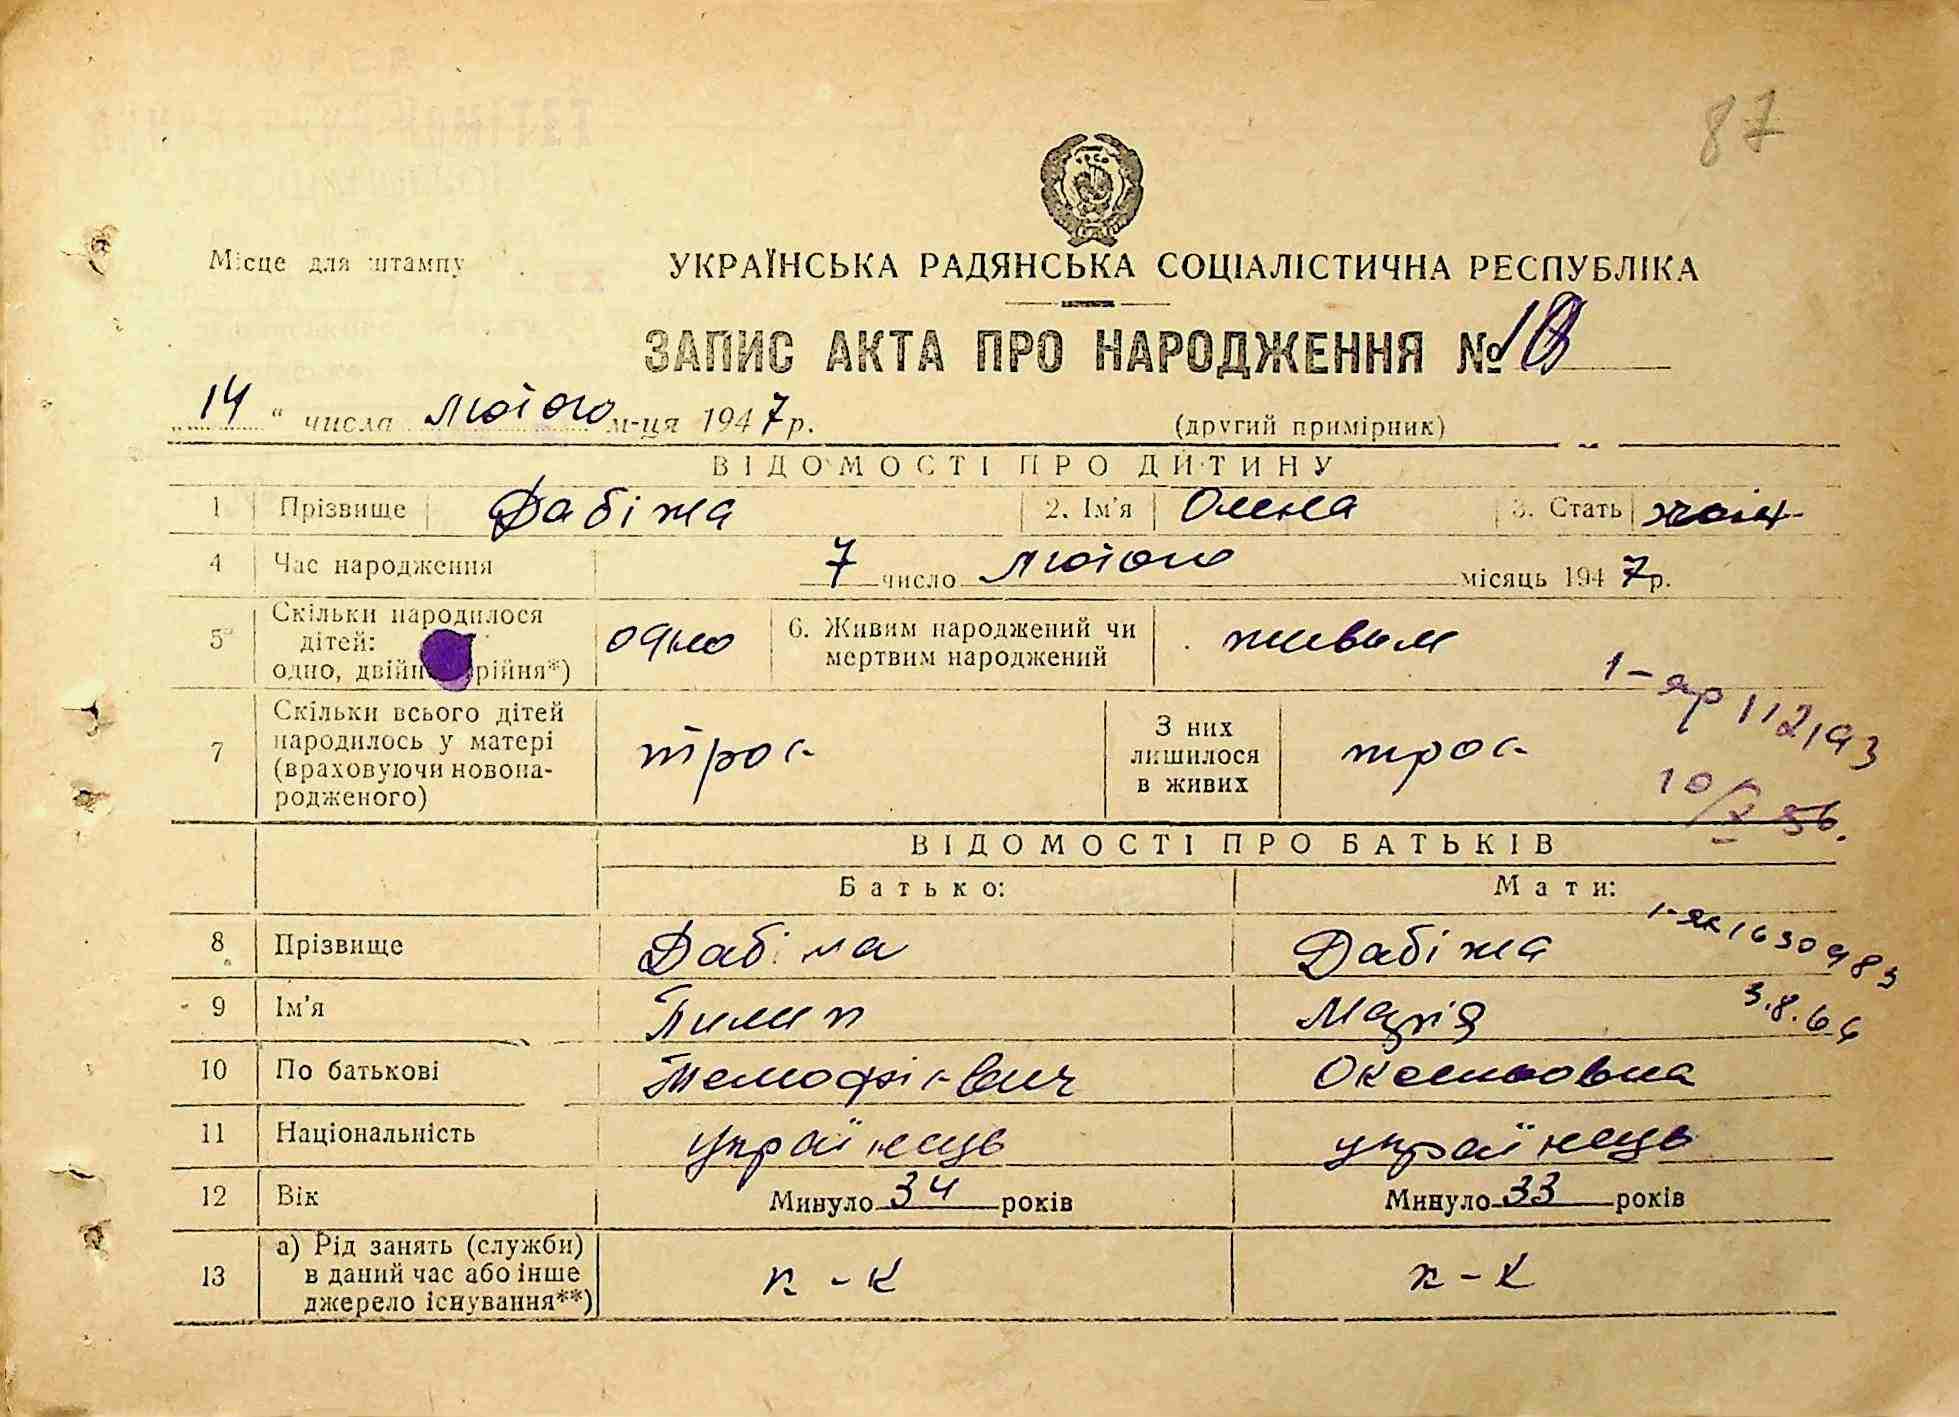 87
Місце для штампу
УКРАЇНСЬКА РАДЯНСЬКА СОЦІАЛІСТИЧНА РЕСПУБЛІКА
ЗАПИС АКТА ПРО НАРОДЖЕННЯ №
14 " числа лютого м-ця 1947 р.
(другий примірник)
ВІДОМОСТІ ПРО ДИТИНУ
1 Прізвище Дабіжа 2. Ім'я Олена 3. Стать жін
4 Час народження 7 число лютого місяць 1947 р.
5 Скільки народилося дітей: одно, двійня, трійня*) одно 6. Живим народжений чи мертвим народжений живым
1-яр 112193
10/X 56.
7 Скільки всього дітей народилось у матері (враховуючи новонародженого) троє З них лишилося в живих троє
ВІДОМОСТІ ПРО БАТЬКІВ
Батько: Мати:
1-як 1630983
3.8.66
8 Прізвище Дабіжа Дабіжа
9 Ім'я Пилип Марія
10 По батькові
11 Національність українець українець
12 Вік Минуло 34 років Минуло 33 років
13 а) Рід занять (служби) в даний час або інше джерело існування**) к-к к-к